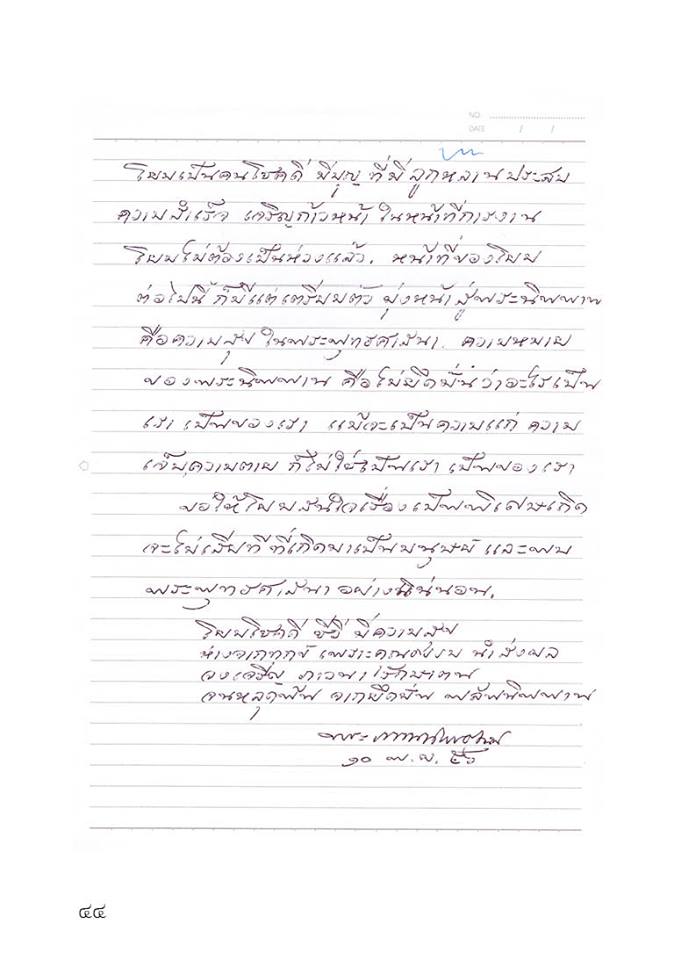 NO.
DATE / /
โยมเป็นคนโชคดี มีบุญ ที่มี ลูกหลาน ประสบ
ความสำเร็จ เจริญก้าวหน้า ในหน้าที่การงาน
โยมไม่ต้องเป็นห่วงแล้ว. หน้าที่ของโยม
ต่อไปนี้ ก็มีแต่เตรียมตัว มุ่งหน้าสู่พระนิพพาน
คือความสุข ในพระพุทธศาสนา. ความหมาย
ของพระนิพพาน คือไม่ยึดมั่นว่าอะไรเป็น
เรา เป็นของเรา แม้จะเป็นความแก่ ความ
เจ็บ ความตาย ก็ไม่ใช่เป็นเรา เป็นของเรา
ขอให้โยมสนใจเรื่องเป็นพิเศษเถิด
จะไม่เสียทีที่เกิดมาเป็นมนุษย์ และพบ
พระพุทธศาสนา อย่างแน่นอน.
โยมโชคดี มีความสุข
ห่างจากทุกข์ เพราะคุณธรรม นำส่งผล
จงเจริญ ภาวนา รักษาตน
จนหลุดพ้น จากยึดมั่น พลันนิพพาน
พระ
๑๐ พ.ย. ๕๖
๔๔